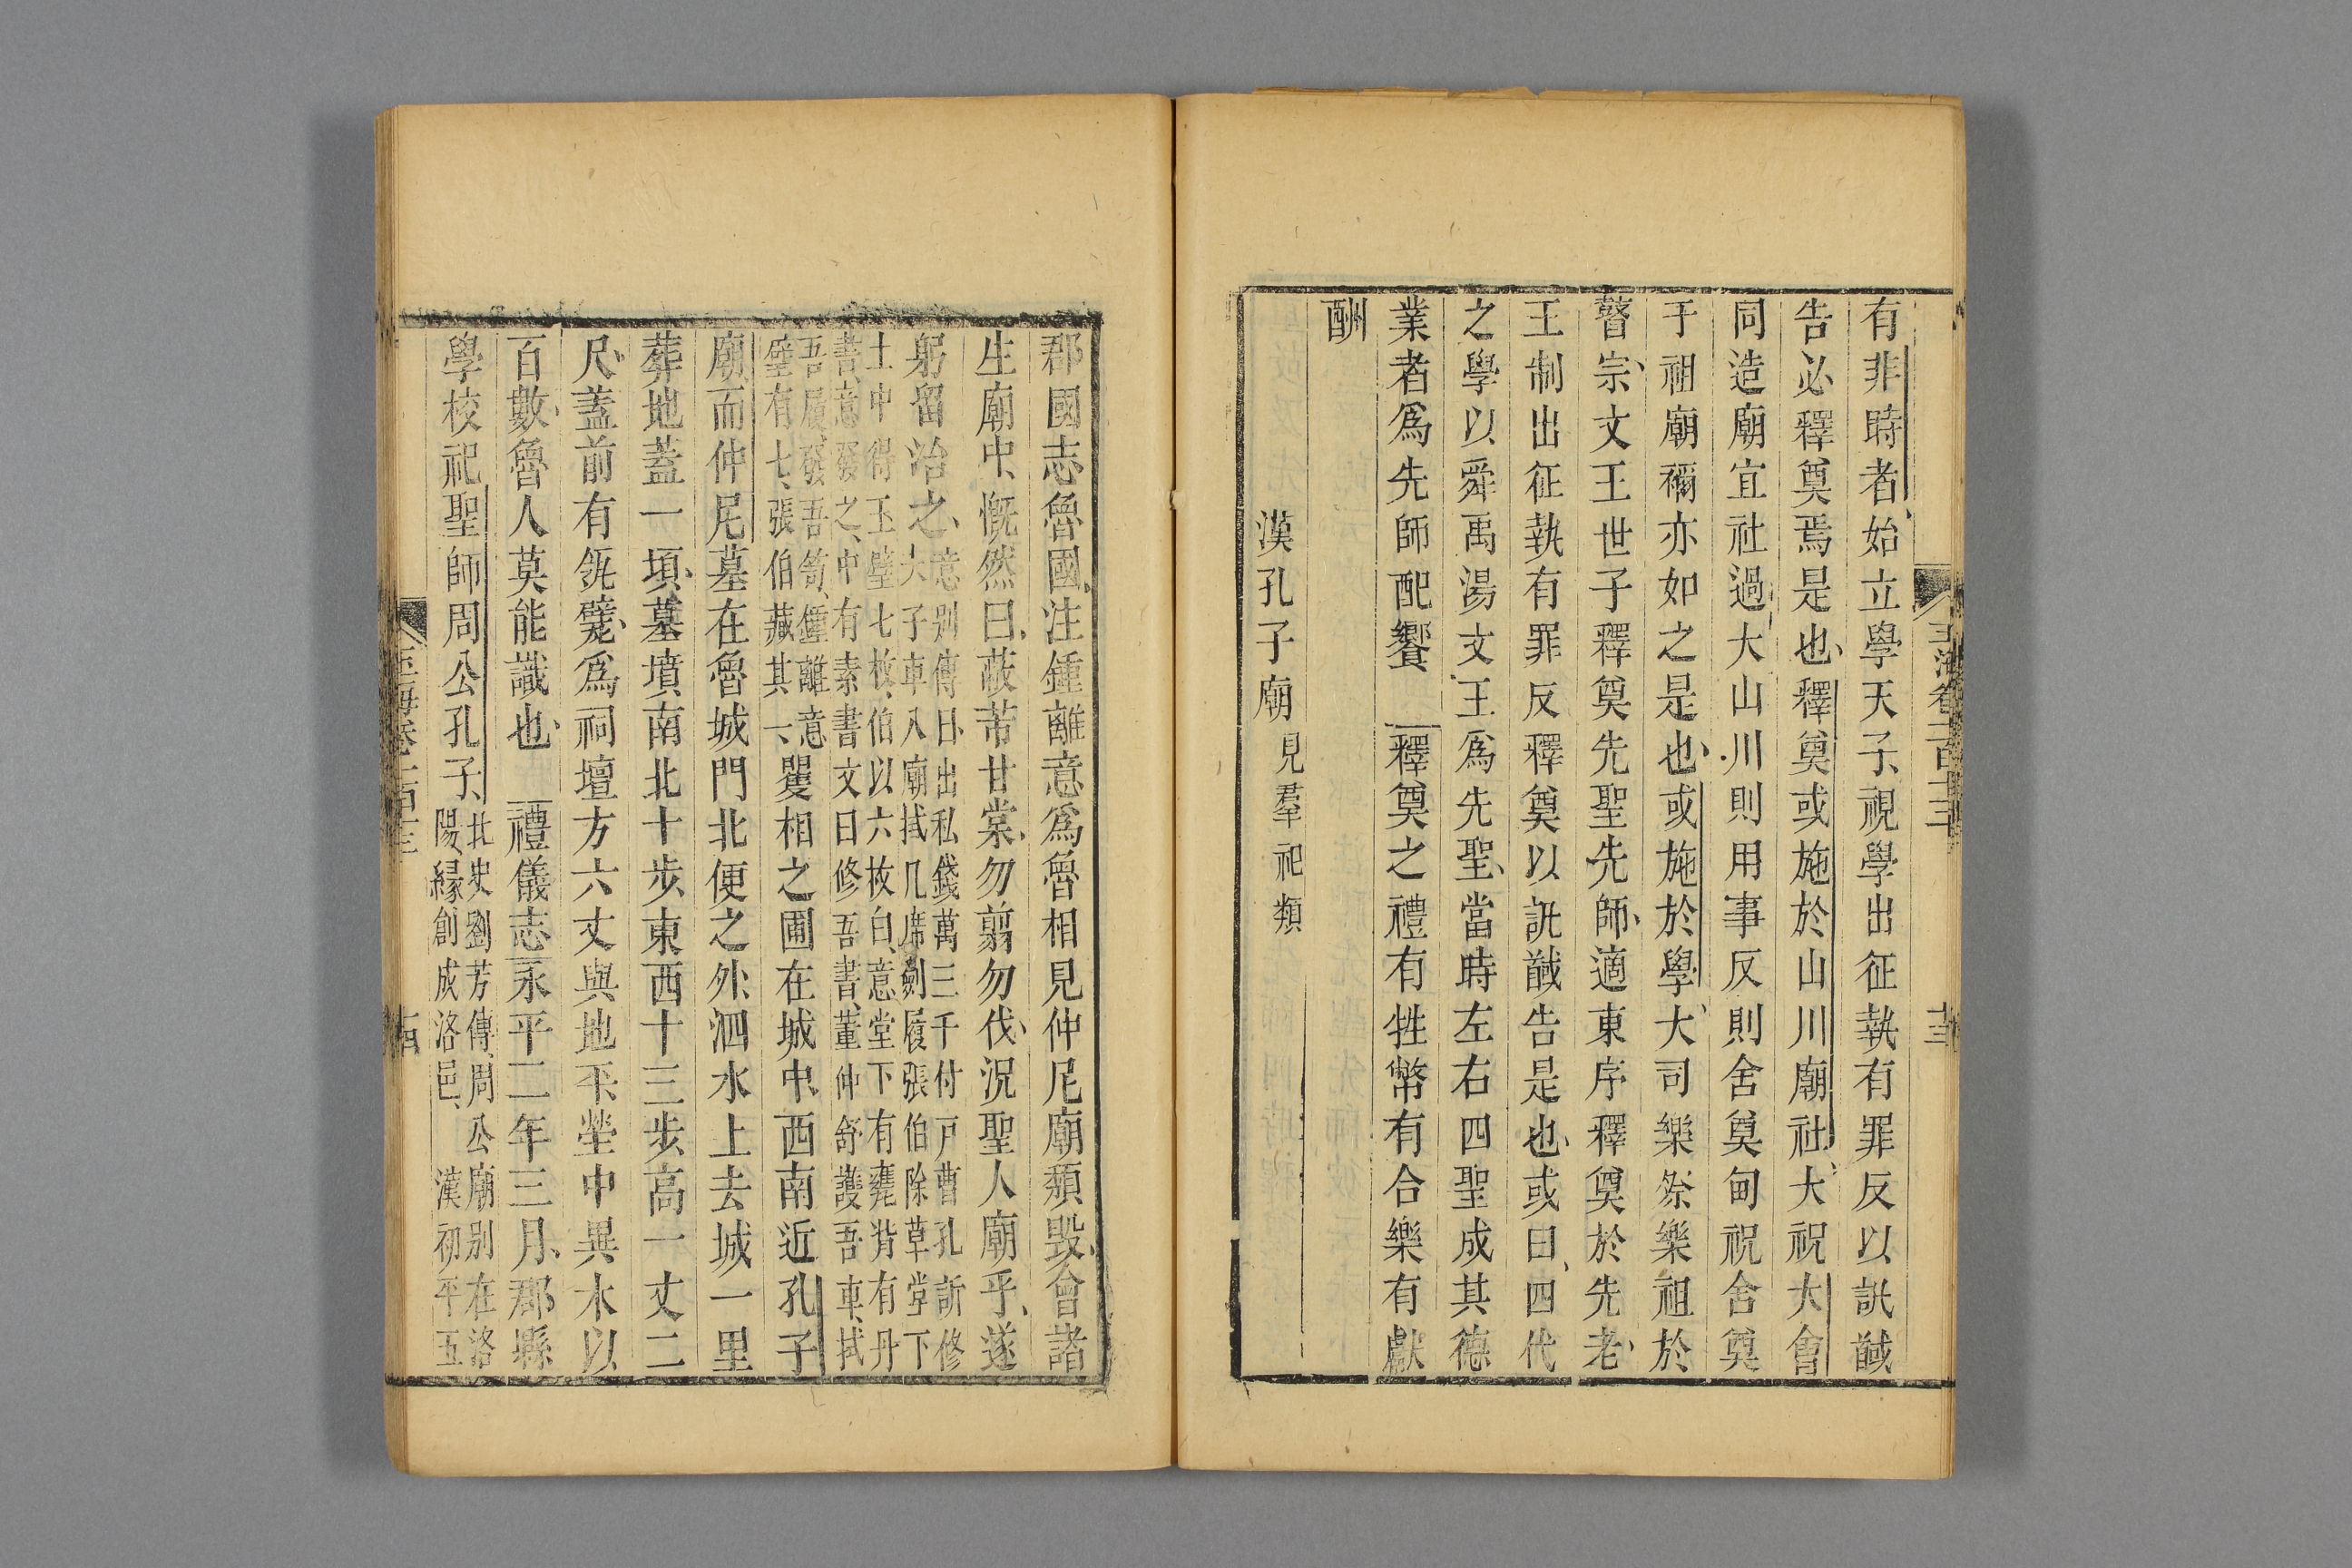 玉海卷一百十三
十三
有非時者始立學天子視學出征執有罪反以訊馘
告必釋奠焉是也釋奠或施於山川廟社大祝大會
同造廟宜社過大山川則用事反則舍奠甸祝舍奠
于祖廟禰亦如之是也或施於學大司樂祭樂祖於
瞽宗文王世子釋奠先聖先師適東序釋奠於先老
王制出征執有罪反釋奠以訊馘告是也或曰四代
之學以舜禹湯文王爲先聖當時左右四聖成其德
業者爲先師配饗 釋奠之禮有牲幣有合樂有獻
酬
漢孔子廟見羣祀類
郡國志魯國注鍾離意爲魯相見仲尼廟頹毀會諸
生廟中慨然曰蔽芾甘棠勿翦勿伐況聖人廟乎遂
躬留治之意別傳曰出私錢萬三千付戸曹孔訢修
夫子車入廟拭几席劍履張伯除草堂下
土中得玉璧七枚伯以六枚白意堂下有甕背有丹
書意發之中有素書文曰修吾書董仲舒護吾車拭
吾履發吾笥鍾離意
璧有七張伯藏其一矍相之圃在城中西南近孔子
廟而仲尼墓在魯城門北便之外泗水上去城一里
葬地蓋一頃墓墳南北十步東西十三步高一丈二
尺蓋前有瓴甓爲祠壇方六丈與地平塋中異木以
百數魯人莫能識也 禮儀志永平二年三月郡縣
學校祀聖師周公孔子北史劉芳傳周公廟別在洛
陽緣創成洛邑 漢初平五
玉海卷一百十三
十四